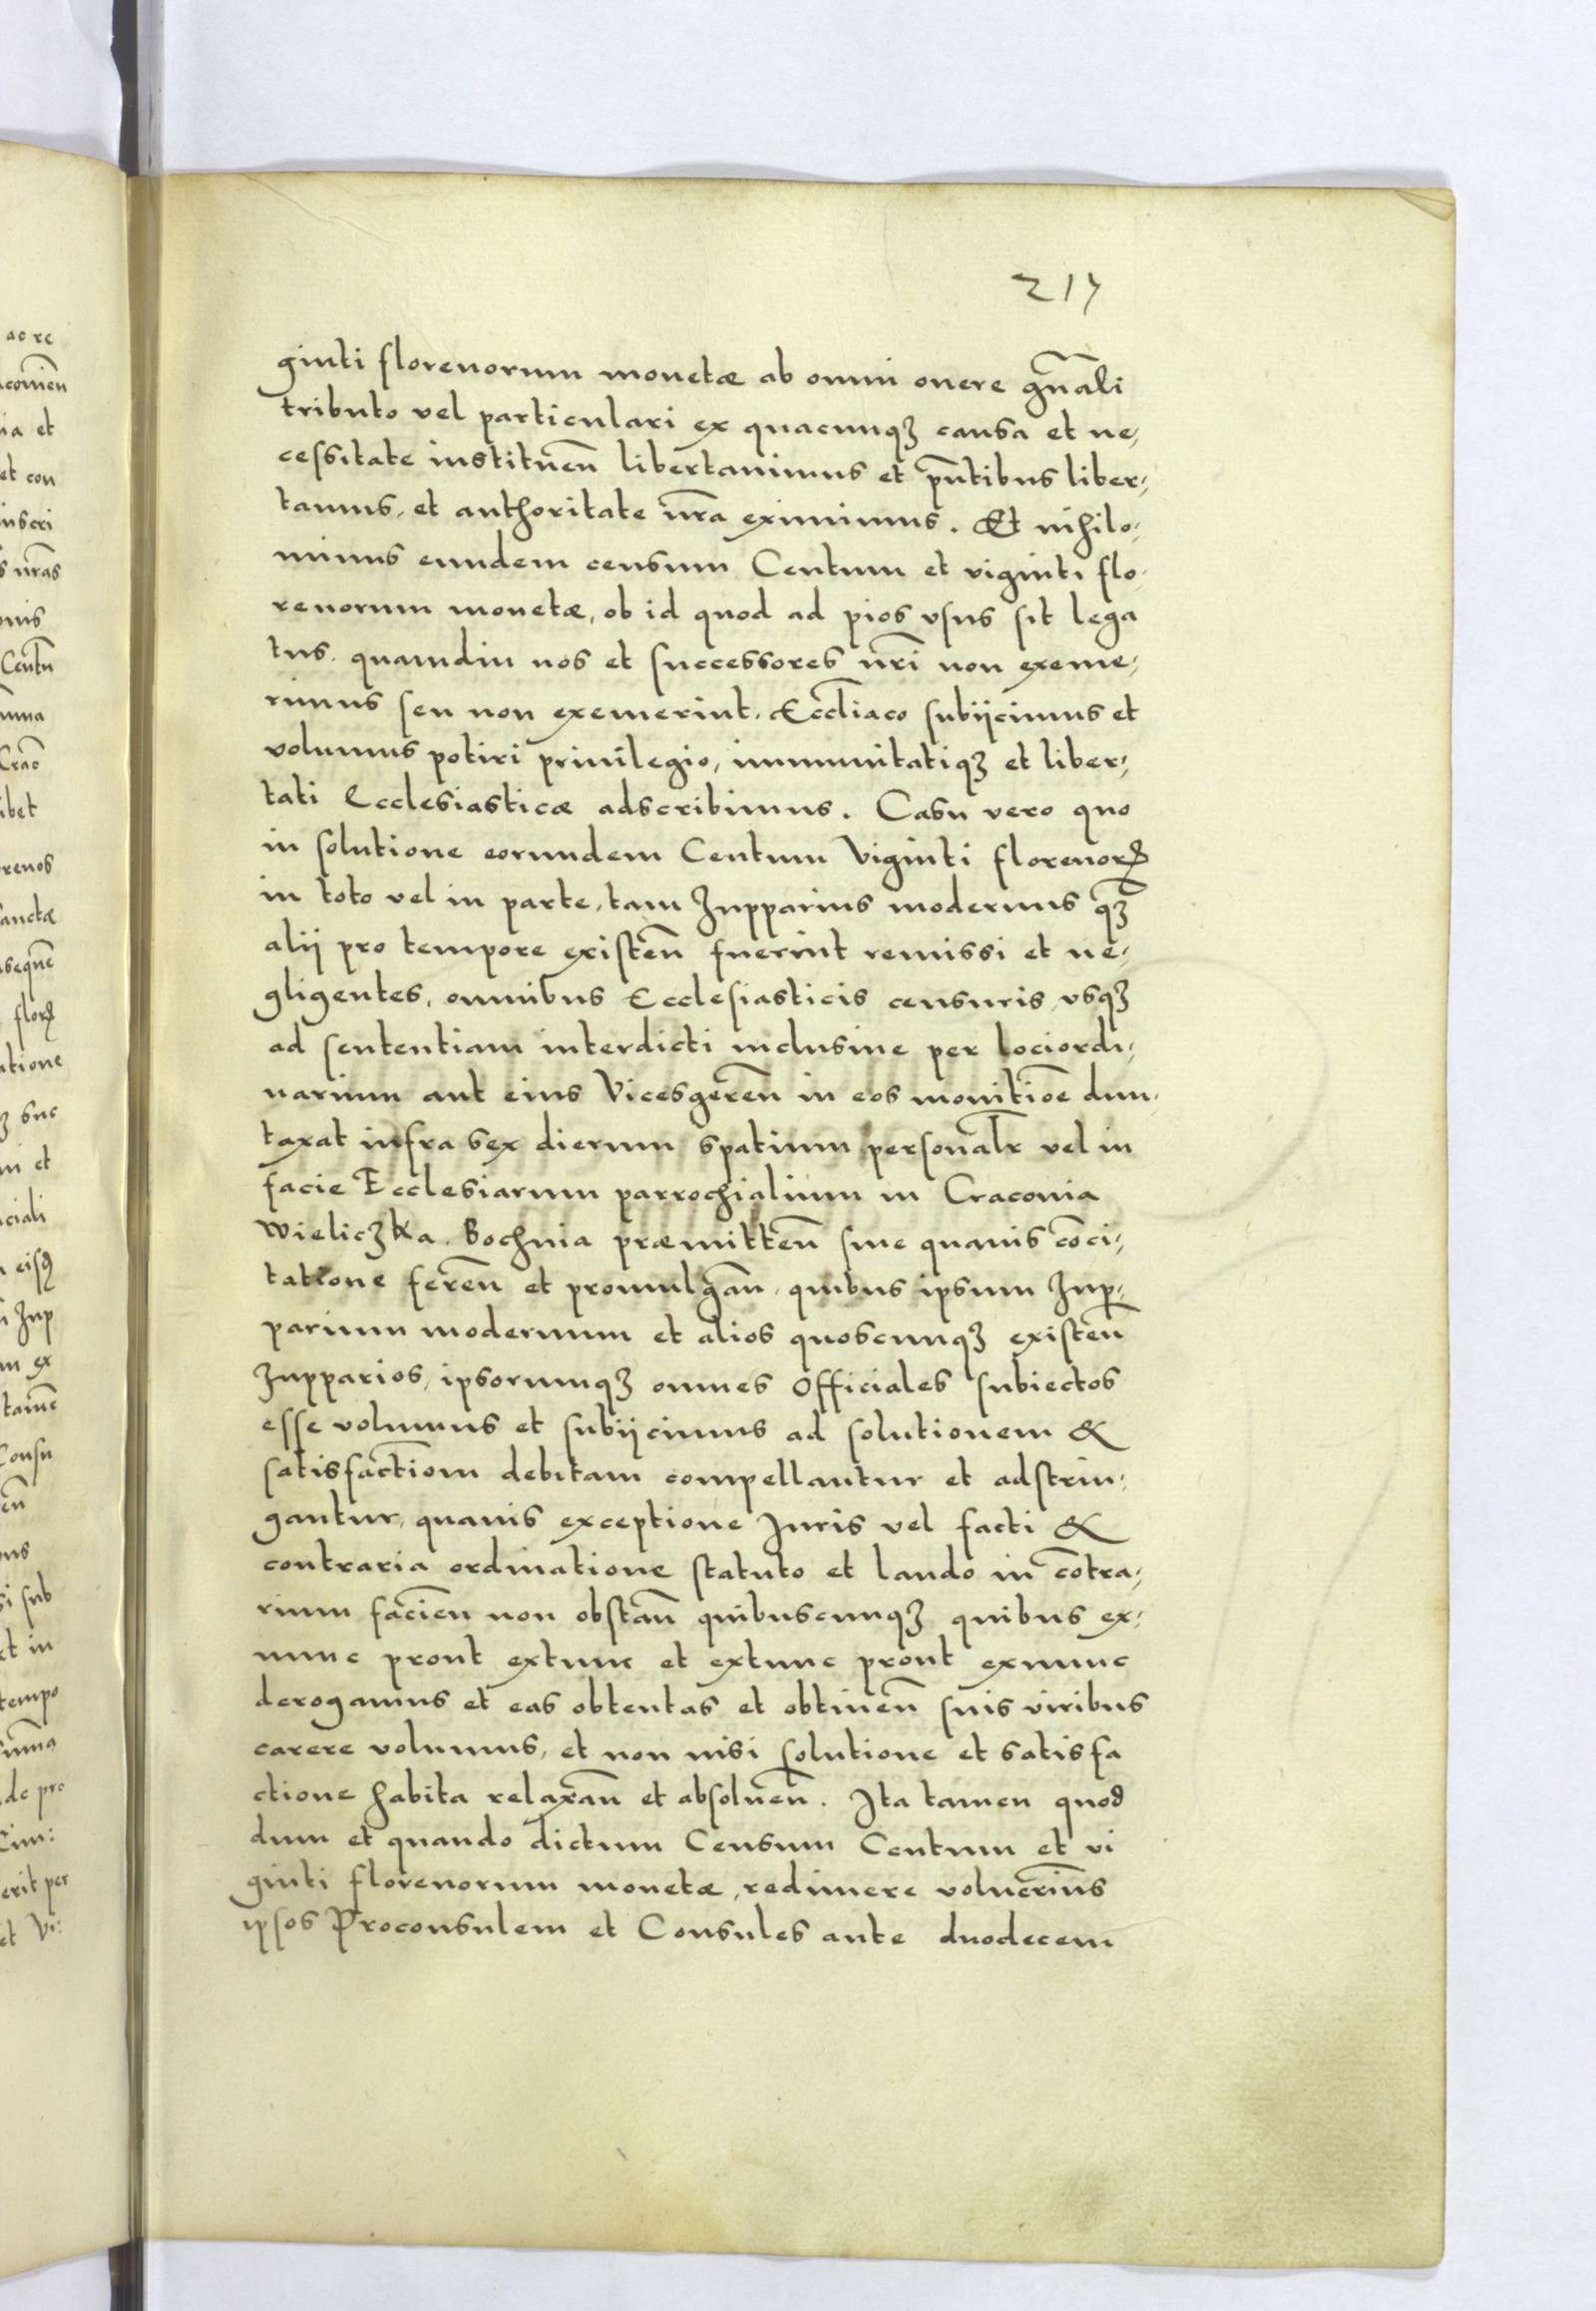 217
ginti florenorum monetæ ab omni onere gn̄ali
tributo vel particulari ex quacunqȝ causa et ne,
cessitate institueñ libertauimus et pñtibus liber,
tamus, et authoritate nr̃a eximimus. Et nihilo,
minus eundem censum Centum et viginti flo,
renorum monetæ, ob id quod ad pios vsus sit lega
tus. quamdiu nos et successores nr̃i non exeme,
rimus seu non exemerint, Eccl̃iaco subijcimus et
volumus potiri priuilegio, immunitatiqȝ et liber,
tati Ecclesiasticæ adscribimus. Casu vero quo
in solutione eorundem Centum Viginti florenorꝝ
in toto vel in parte, tam Zupparius modernus qȝ̃
alij pro tempore existeñ fuerint remissi et ne,
gligentes, omnibus Ecclesiasticis censuris vsqȝ
ad sententiam interdicti inclusiue per lociordi,
narium aut eius Vicesgereñ in eos monitiõe dun,
taxat infra sex dierum spatium personalr̃ vel in
facie Ecclesiarum parrochialium in Craconia
Wieliczka. Bochnia præmitteñ sine quauis cõci,
tatione fereñ et promulgañ, quibus ipsum Zup,
parium modernum et alios quoscunqȝ existeñ
Zupparios, ipsorumqȝ omnes Officiales subiectos
esse volumus et subijcimus ad solutionem &
satisfactiom̃ debitam compellantur et adstrin,
gantur, quauis exceptione Juris vel facti &
contraria ordinatione statuto et laudo in cõtra,
rium facieñ non obstañ quibuscunqȝ quibus ex,
nunc prout extunc et extunc prout exnunc
derogamus et eas obtentas et obtineñ suis viribus
carere volumus, et non nisi solutione et satisfa
ctione habita relaxañ et absolueñ. Ita tamen quod
dum et quando dictum Censum Centum et vi
ginti florenorum monetæ, redimere voluerim̃s
ipsos Proconsulem et Consules ante duodecem